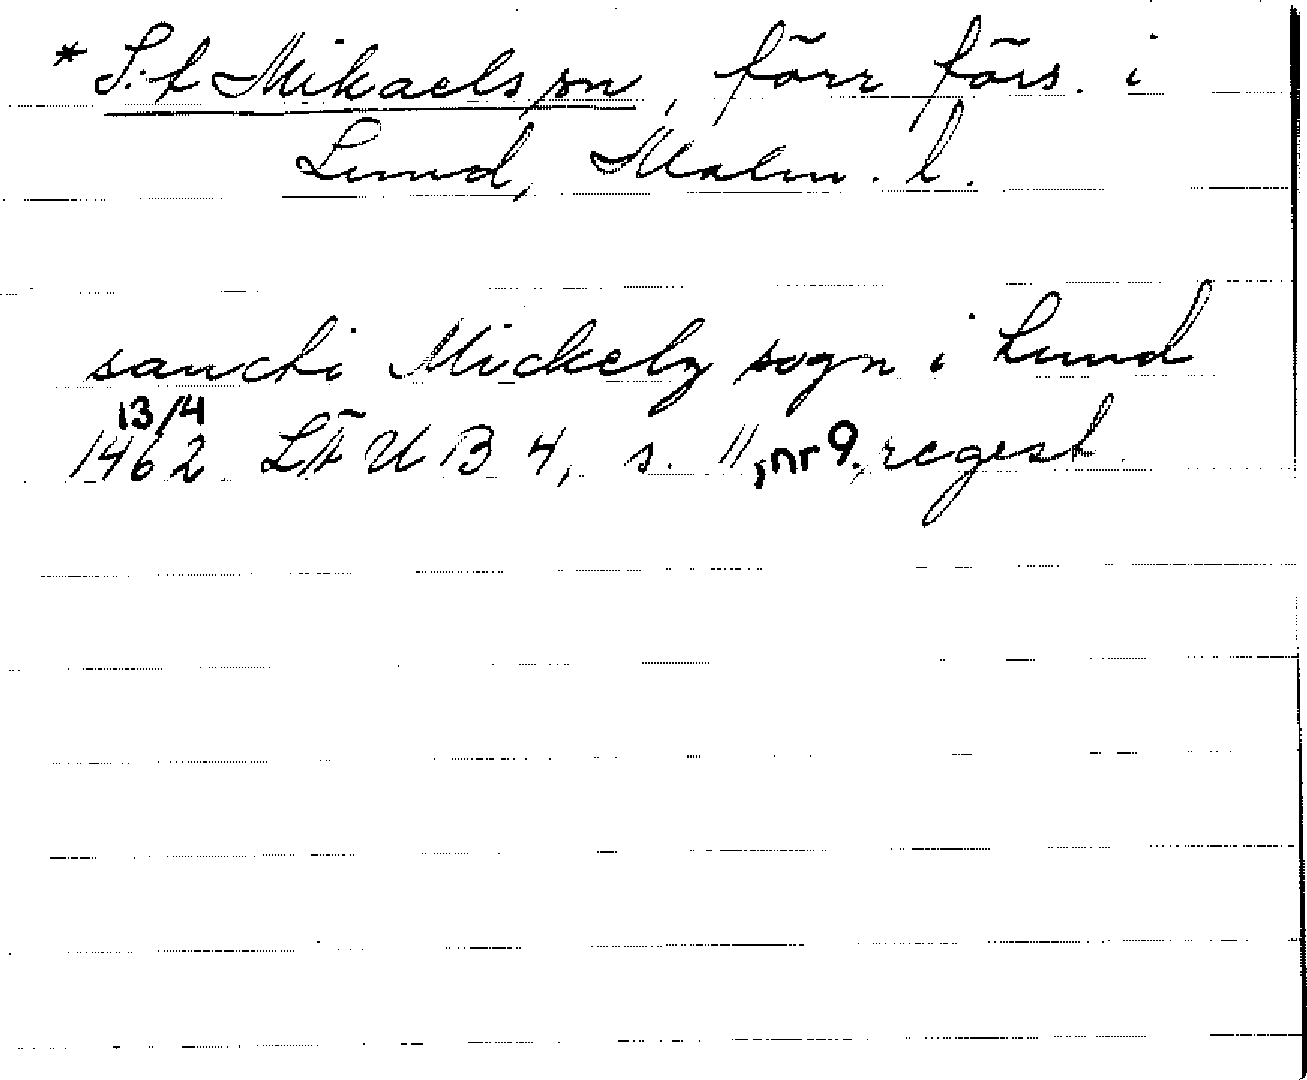 * S:t Mikaels sn, förr förs. i
Lund, Malm. l.
sancti Mickelz sogn i Lund
13/4
1462 LÄUB 4, s. 11, nr 9, regest.